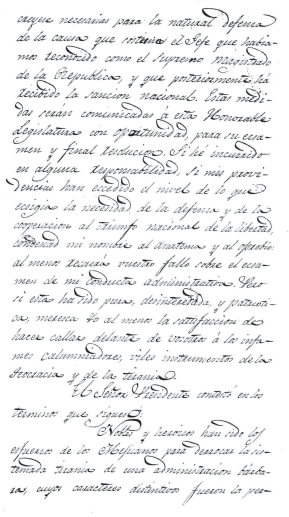 creyese necesarias para la natural defensa
de la causa que sostenia el Jefe que habia-
mos reconocido como el Supremo Magistrado
de la Republica, y que posteriormente há
recibido la sancion nacional. Estas medi-
das serán comunicadas á esta Honorable
Legislatura con oportunidad, para su ecsa-
men y final resolucion. Si hé incurrido
en alguna responsabilidad, si mis provi-
dencias han ecsedido el nivel de lo que
ecsigia la necesidad de la defensa y de la
cooperacion al triunfo nacional de la libertad,
condenad mi nombre al anatema y al oprobio:
al menos recaerá vuestro fallo sobre el ecsa-
men de mi conducta administradora. Pero
si esta ha sido pura, desinteresada, y patrioti-
ca, meresca yo al menos la satisfaccion de
hacer callar delante de vosotros á los infa-
mes calumniadores, viles instrumentos de la
y de la tirania.
El Señor Presidente contestó en los
terminos que siguen:
Nobles y heroicos han sido los
esfuerzos de los para derrocar la sis-
temada tirania de una administracion bárba-
ra, cuyos caracteres distintivos fueron la per-